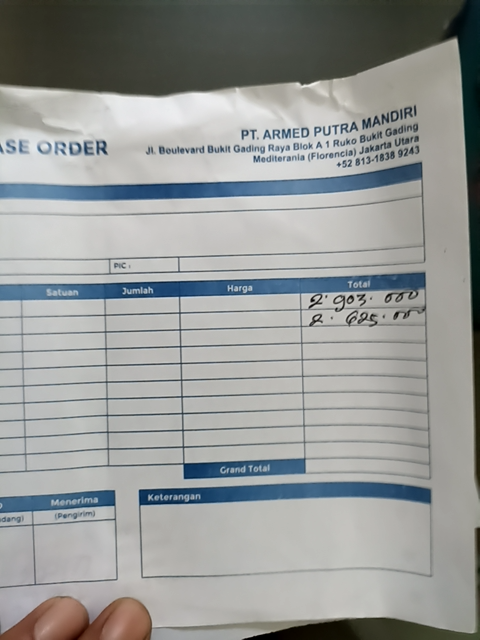 ASE ORDER
PT. ARMED PUTRA MANDIRI
Jl. Boulevard Bukit Gading Raya Blok A 1 Ruko Bukit Gading
Mediterania (Florencia) Jakarta Utara
+52 813-1838 9243
PIC :
Satuan Jumlah Harga Total
2.903.000
2.625.000
Grand Total
Menerima
(Pengirim)
Keterangan